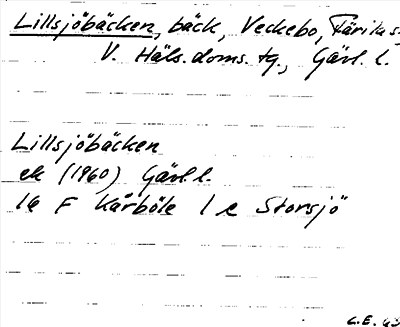 Lillsjöbäcken, bäck, Veckebo, Färila s:n
V. Häls. doms. tg., Gävl. l.
Lillsjöbäcken
ek (1960) Gävl. l.
16 F Kårböle 1 e Storsjö
C.E. 63